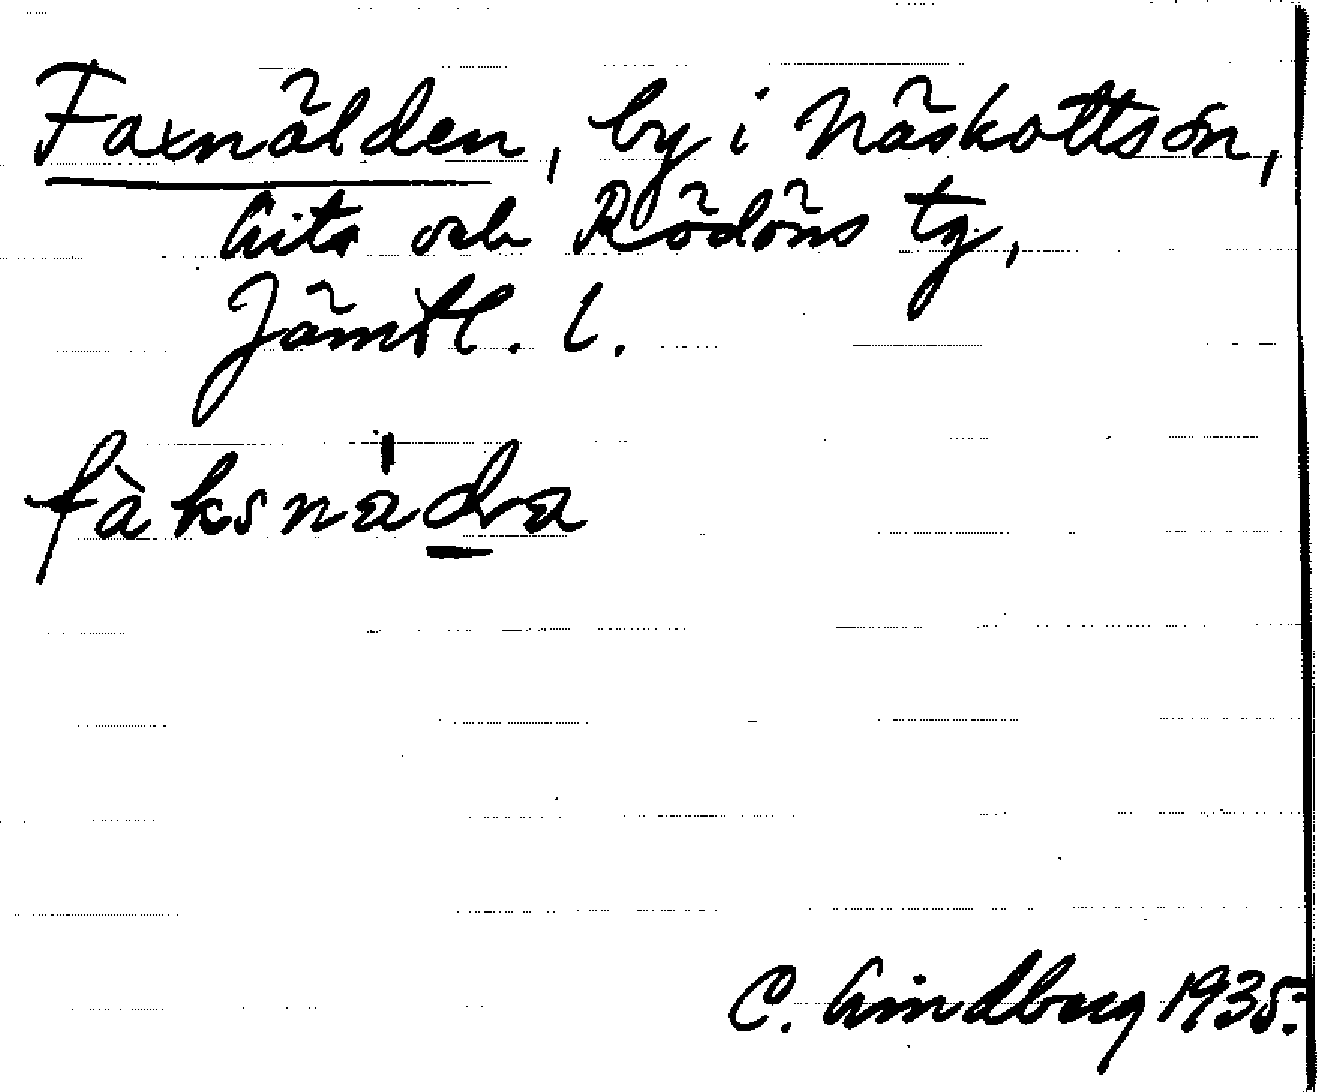 Faxnälden, by i Näskotts sn,
Lits och Rödöns tg,
Jämtl. l.
fàksnádra
C. Lindberg 1935.